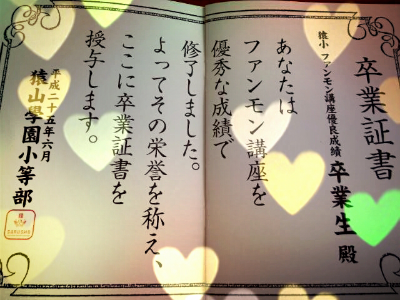 卒業証書
猿小 ファンモン講座優良成績 卒業生 殿
あなたは
ファンモン講座を
優秀な成績で
修了しました。
よってその栄誉を称え、
ここに卒業証書を
授与します。
平成二十五年六月
猿山學園小等部